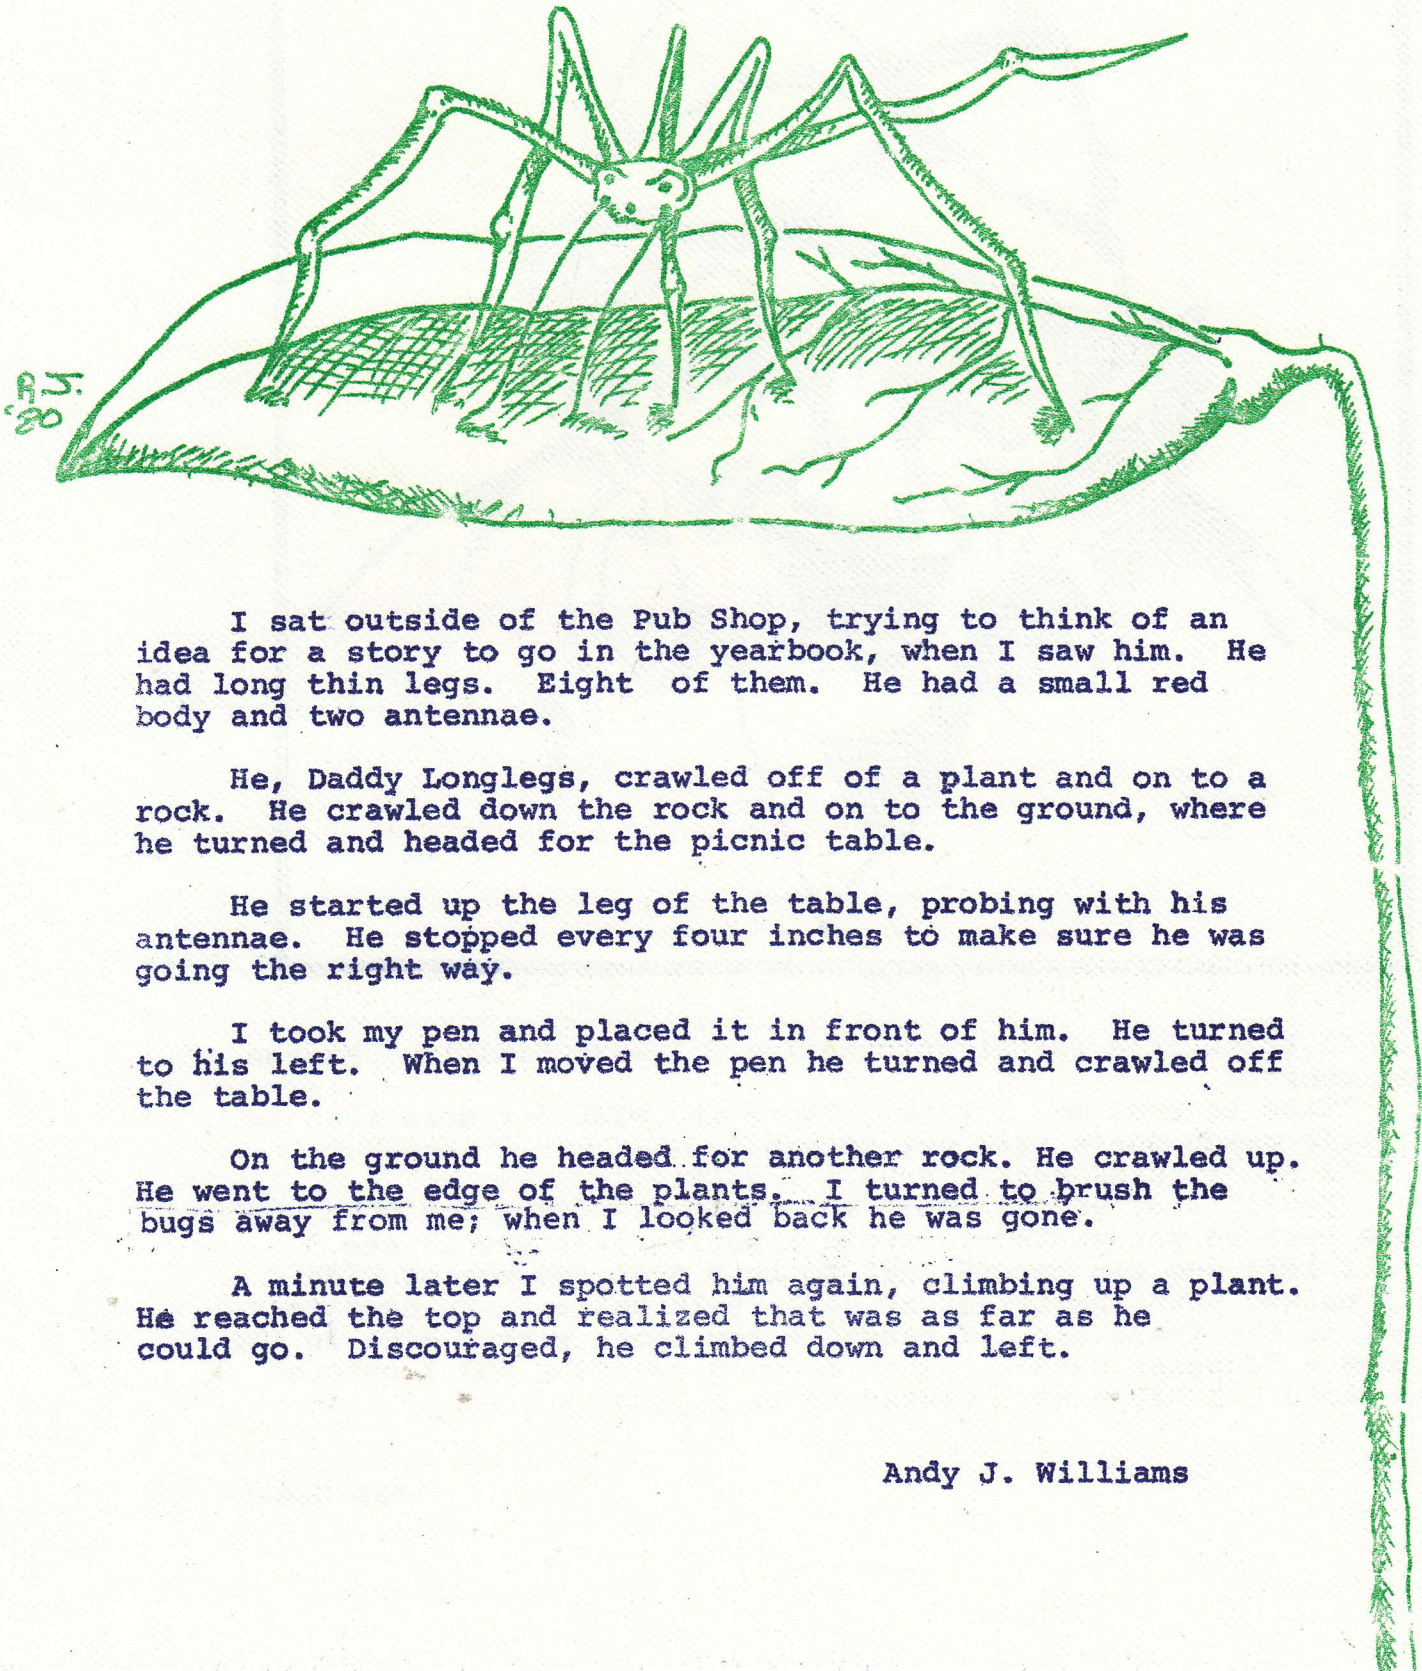 R.J.
'80
I sat outside of the Pub Shop, trying to think of an
idea for a story to go in the yearbook, when I saw him. He
had long thin legs. Eight of them. He had a small red
body and two antennae.
He, Daddy Longlegs, crawled off of a plant and on to a
rock. He crawled down the rock and on to the ground, where
he turned and headed for the picnic table.
He started up the leg of the table, probing with his
antennae. He stopped every four inches to make sure he was
going the right way.
I took my pen and placed it in front of him. He turned
to his left. When I moved the pen he turned and crawled off
the table.
On the ground he headed for another rock. He crawled up.
He went to the edge of the plants. I turned to brush the
bugs away from me; when I looked back he was gone.
A minute later I spotted him again, climbing up a plant.
He reached the top and realized that was as far as he
could go. Discouraged, he climbed down and left.
Andy J. Williams